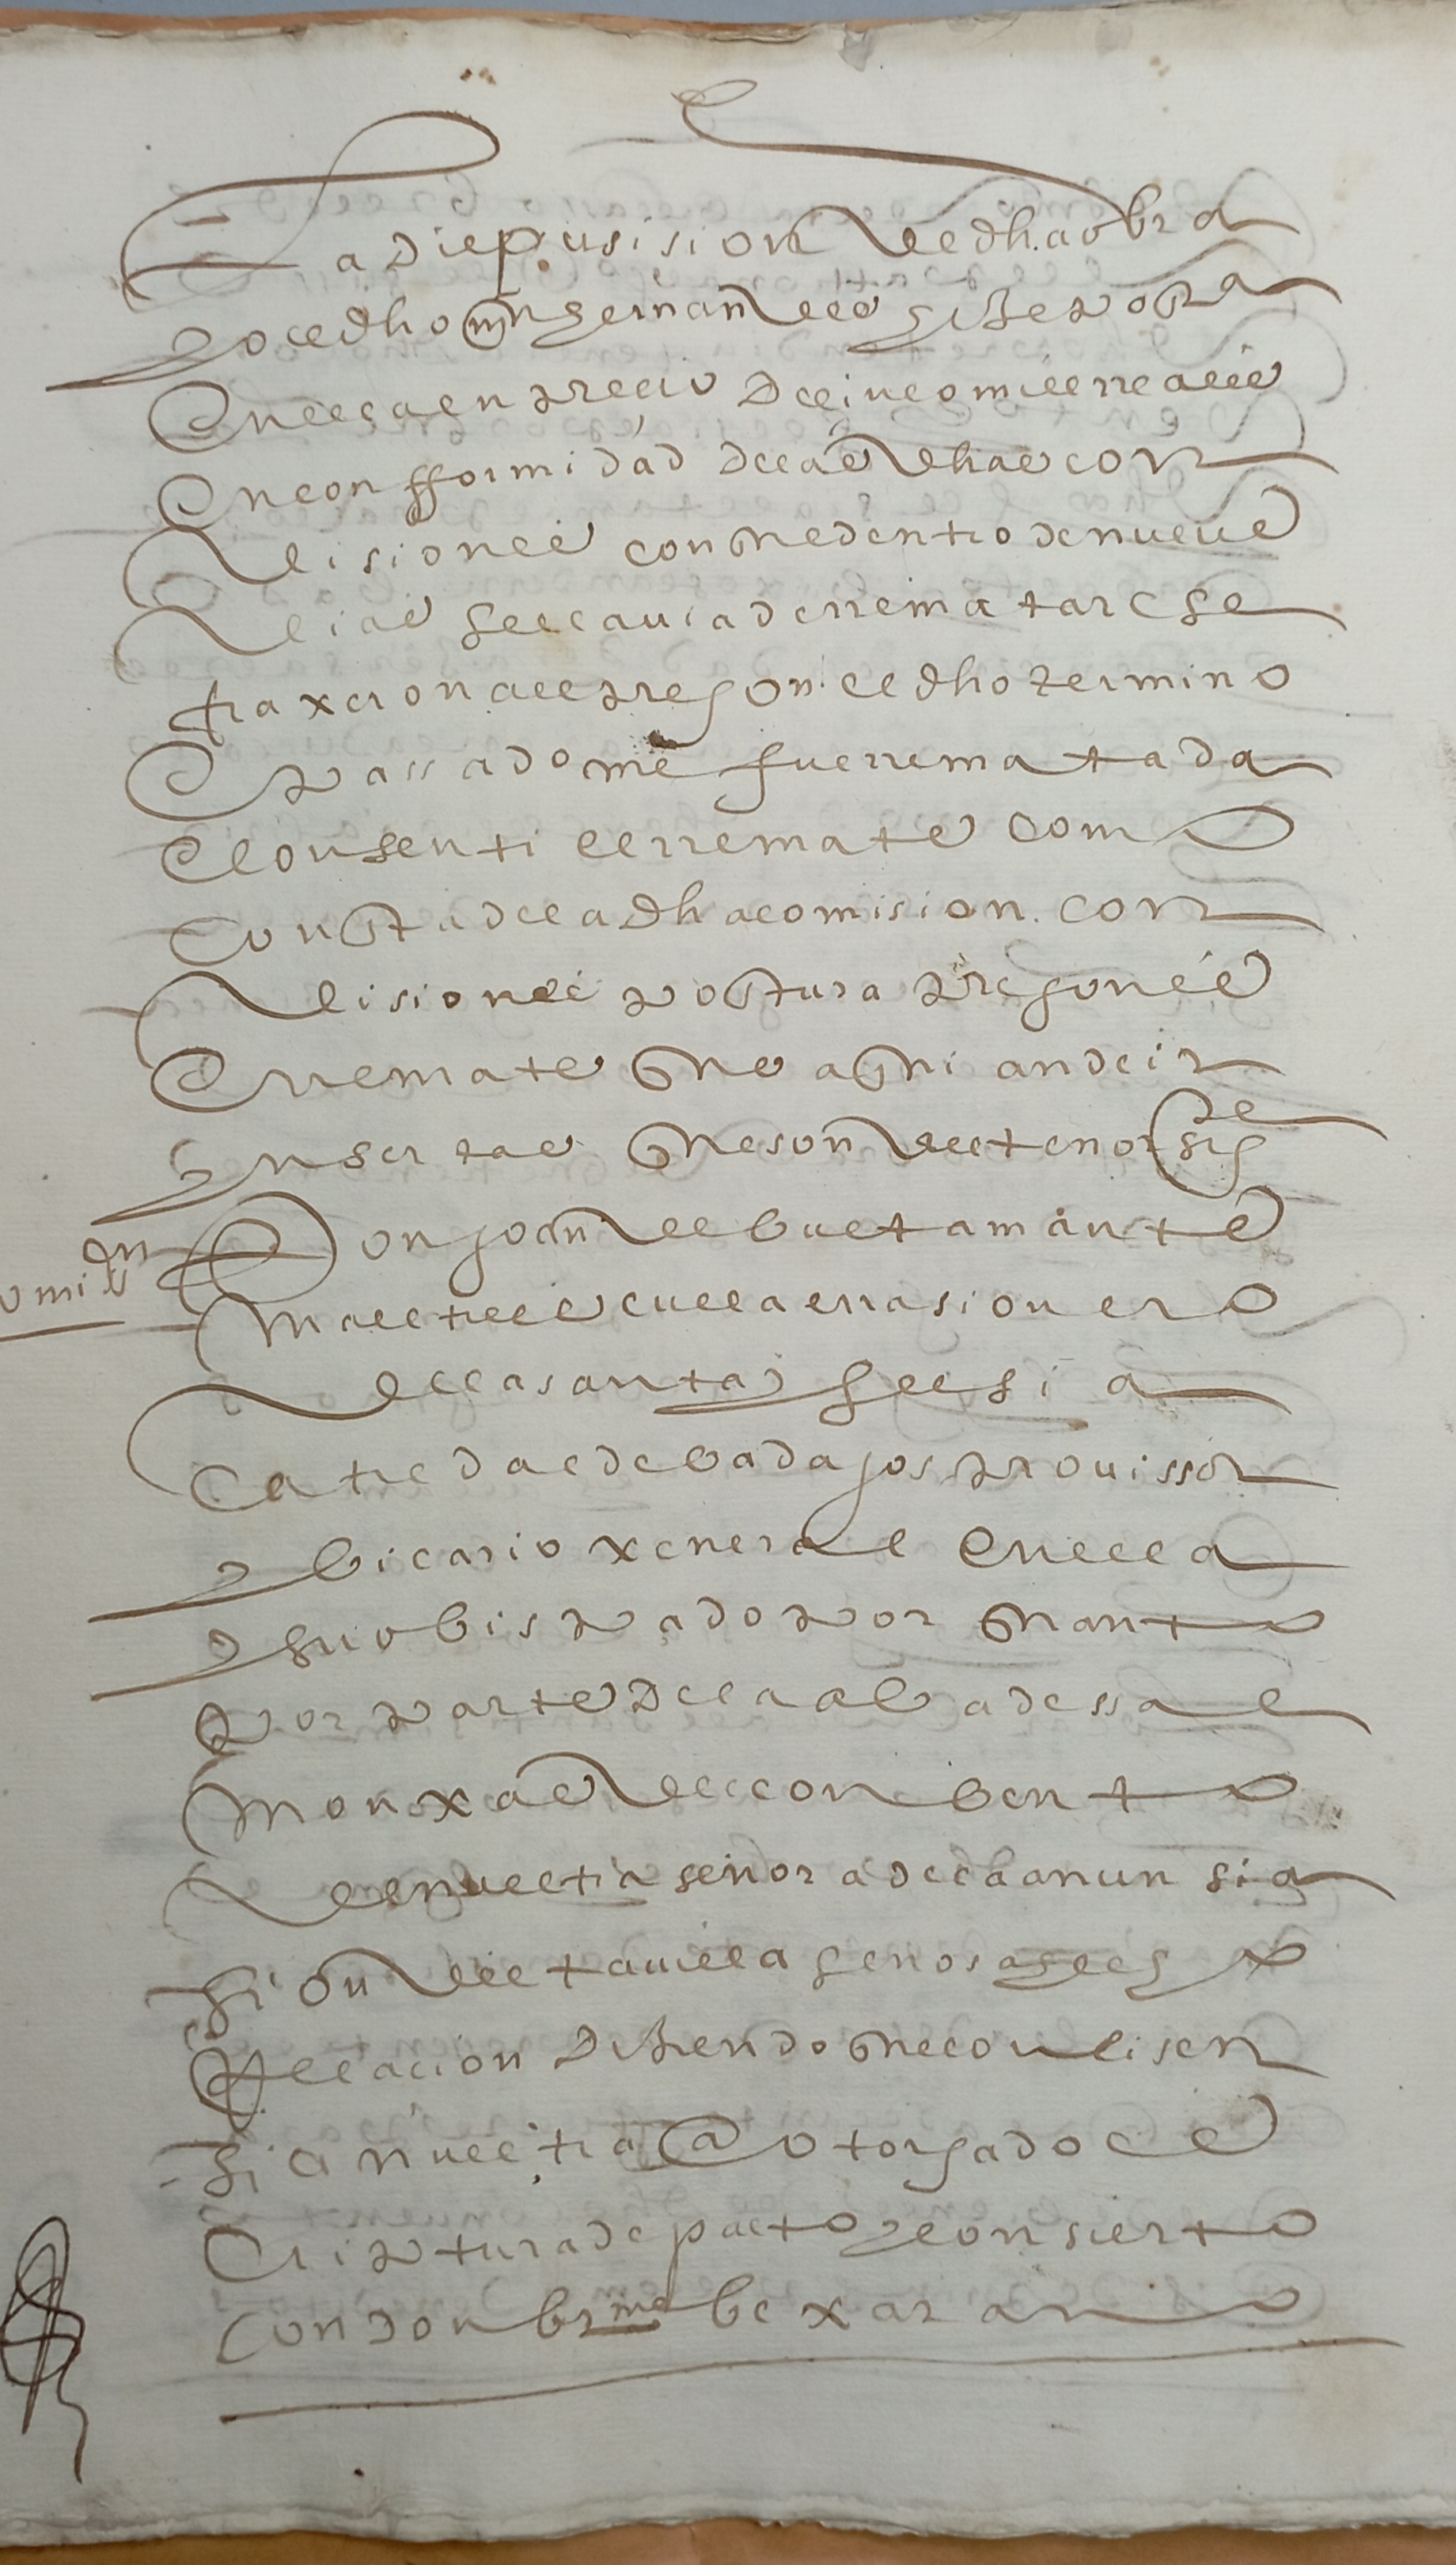 la dispusision de dha obra
yo el dho juan german ise postura
en ella en presio de sinco mill rreales
en conformidad de las dhas con
disiones con que dentro de nueve
dias se le avia de rrematar e se
traxeron al pregon el dho termino
e passado me fue rrematada
e consenti el rremate como
consta de la dha comision con
disiones postura pregones
e rremate que aqui an de ir
ynsertas que son del tenor sigte
comision
Don joan de bustamante
maestre escuela e rrasionero
de la santa yglesia
catedral de badajos provissor
y bicario xeneral en ella
y su obispado por quanto
por parte de la abadessa e
monxas del conbento
de nuestra señora de la anunsia
sion desta villa se nos a fecho
rrelacion disiendo que con lisen
sia nuestra a otorgado es
criptura de pacto y consierto
con don brme bexarano